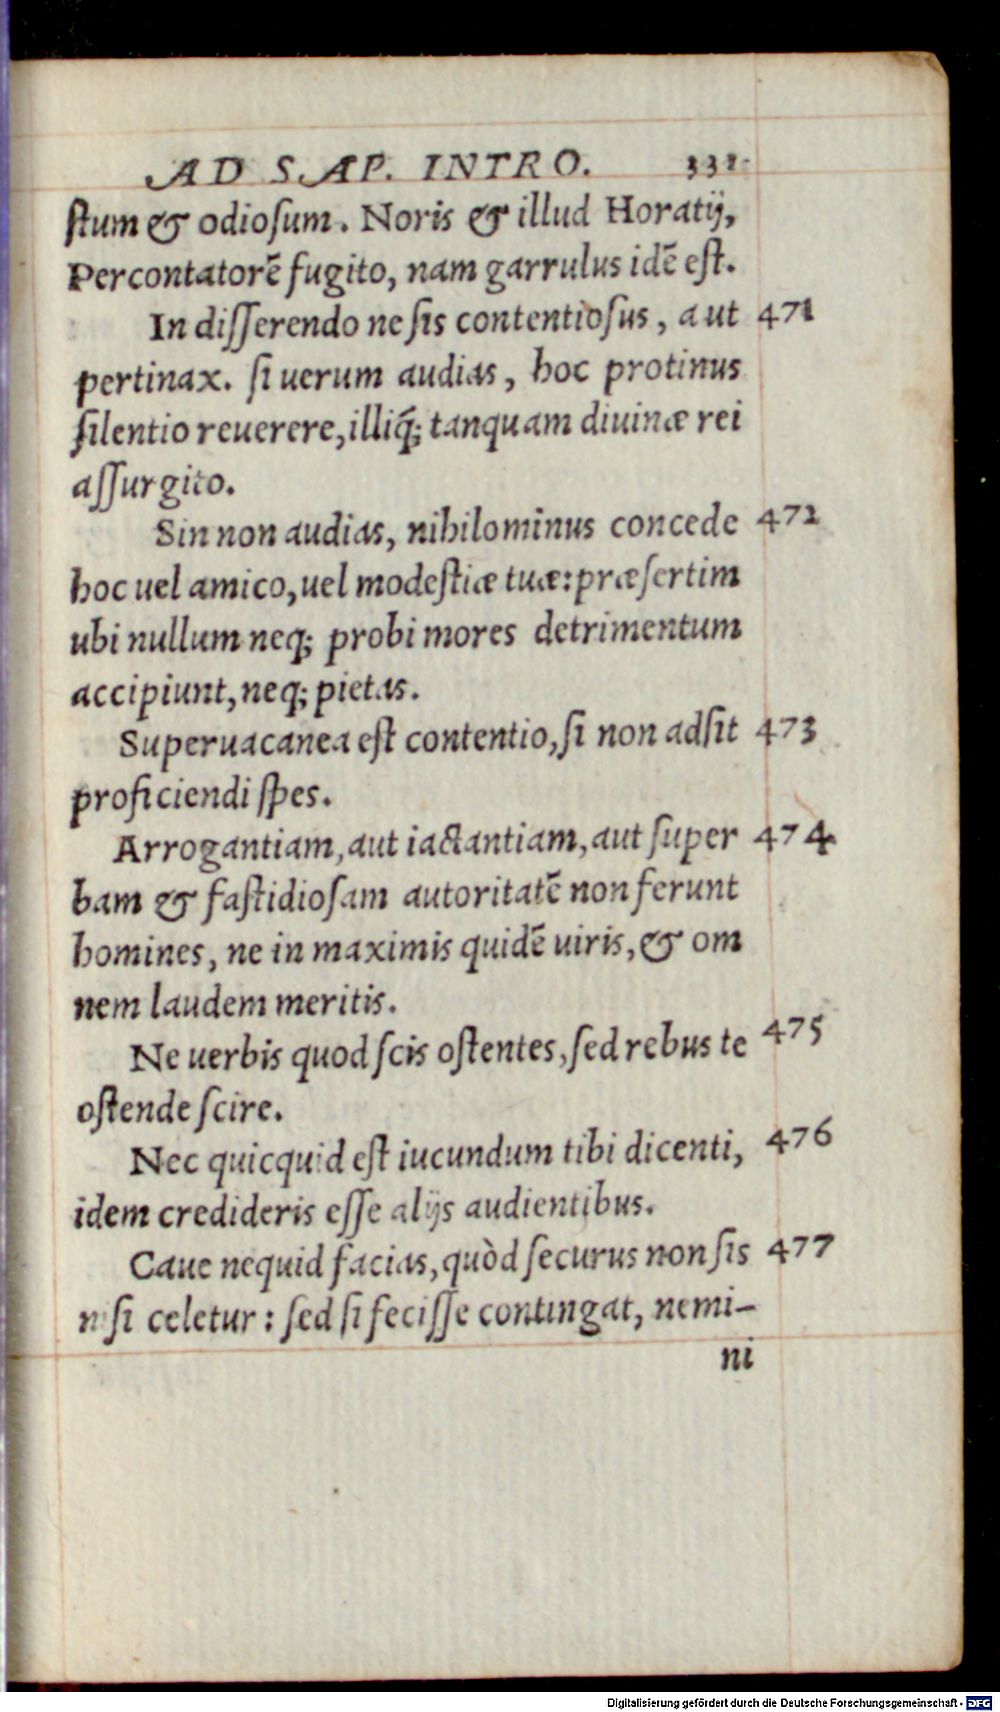 AD SAP. INTRO. 331
ſtum & odioſum. Noris & illud Horatij,
Percontatorẽ fugito, nam garrulus idẽ eſt.
In diſſerendo ne ſis contentioſus, aut 471
pertinax. ſi uerum audias, hoc protinus
ſilentio reuerere, illiq́; tanquam diuinæ rei
aſſurgito.
Sin non audias, nihilominus concede 472
hoc uel amico, uel modeſtiæ tuæ: præſertim
ubi nullum neq; probi mores detrimentum
accipiunt, neq; pietas.
Superuacanea eſt contentio, ſi non adſit 473
proficiendi ſpes.
Arrogantiam, aut iactantiam, aut ſuper 474
bam & faſtidioſam autoritatẽ non ferunt
homines, ne in maximis quidẽ uiris, & om
nem laudem meritis.
Ne uerbis quod ſcis oſtentes, ſed rebus te 475
oſtende ſcire.
Nec quicquid eſt iucundum tibi dicenti, 476
idem credideris eſſe alijs audientibus.
Caue nequid facias, quòd ſecurus non ſis 477
niſi celetur: ſed ſi feciſſe contingat, nemi-
ni
Digitalisierung gefördert durch die Deutsche Forschungsgemeinschaft - DFG